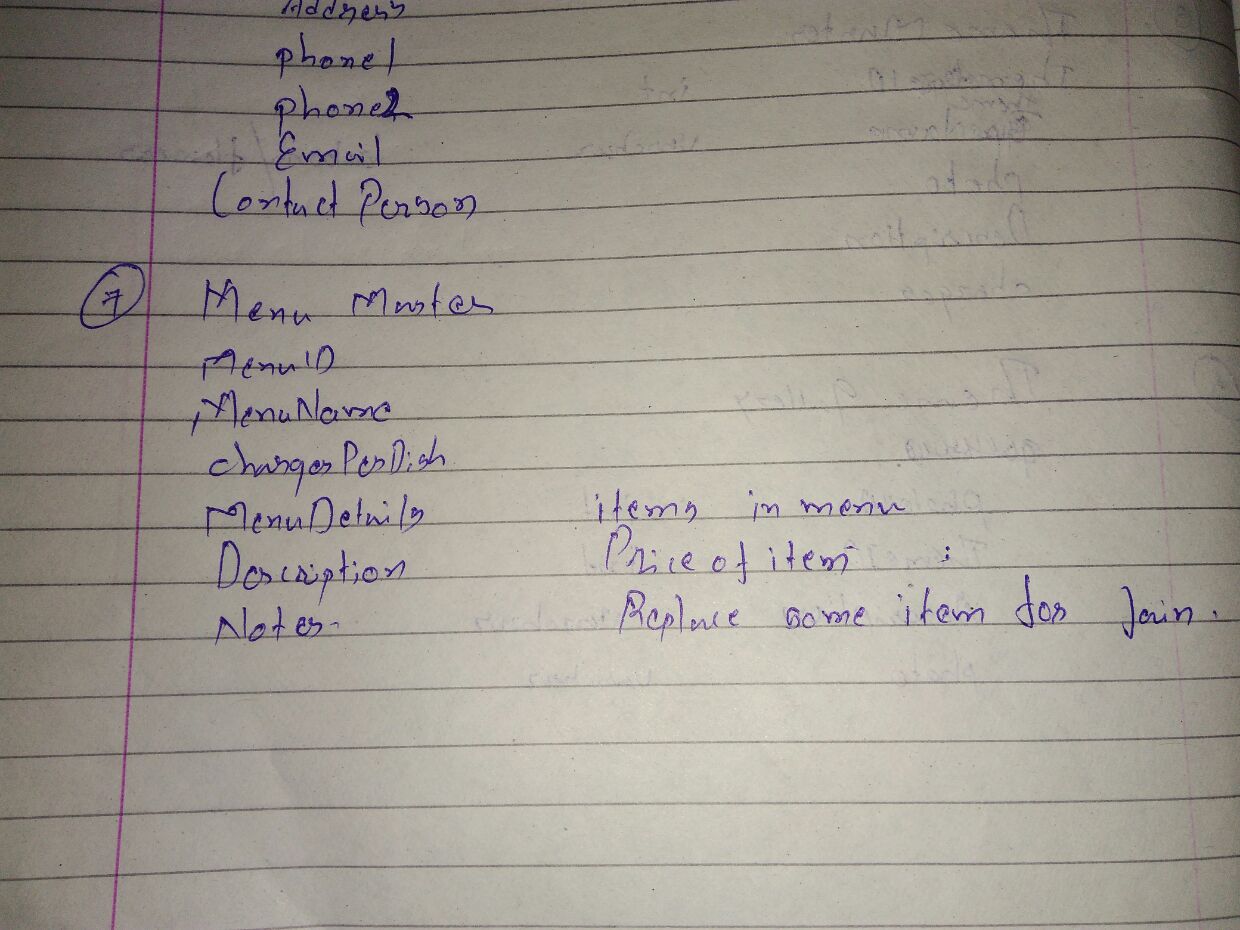 Address
phone1
phone2
Email
Contact Person
7 Menu Master
MenuID
MenuName
chargesPerDish
MenuDetails items in menu
Description Price of item :
Notes- Replace some item for Jain.